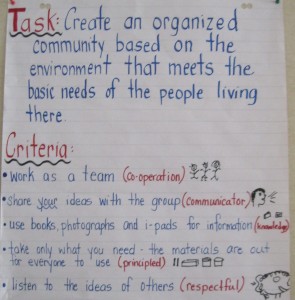 Task: Create an organized
community based on the
environment that meets the
basic needs of the people living
there.
Criteria:
• work as a team (co-operation)
• share your ideas with the group (communicator)
• use books, photographs and i-pads for information (knowledge)
• take only what you need - the materials are out
for everyone to use (principled)
• listen to the ideas of others (respectful)